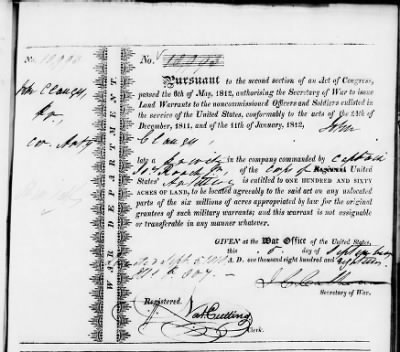 No.
John Clancy,
No.
PURSUANT to the second section of an Act of Congress,
passed the 6th of May, 1812, authorising the Secretary of War to issue
Land Warrants to the noncommissioned Officers and Soldiers enlisted in
the service of the United States, conformably to the acts of the 24th
December, 1811, and of the 11th of January, 1812, John
Clancy,
late a in the company commanded by Captain
of the Corps of Regiment
United States' Artillery is entitled to ONE HUNDRED AND SIXTY
ACRES OF LAND, to be located agreeably to the said act on any unlocated
parts of the six millions of acres appropriated by law for the original
grantees of such military warrants; and this warrant is not assignable
or transferable in any manner whatever.
WAR DEPARTMENT.
GIVEN at the War Office of the United States,
this day of September
A. D. one thousand eight hundred and eighteen.
J. C. Calhoun
Secretary of War.
Registered.
Nat. Cutting
Clerk.